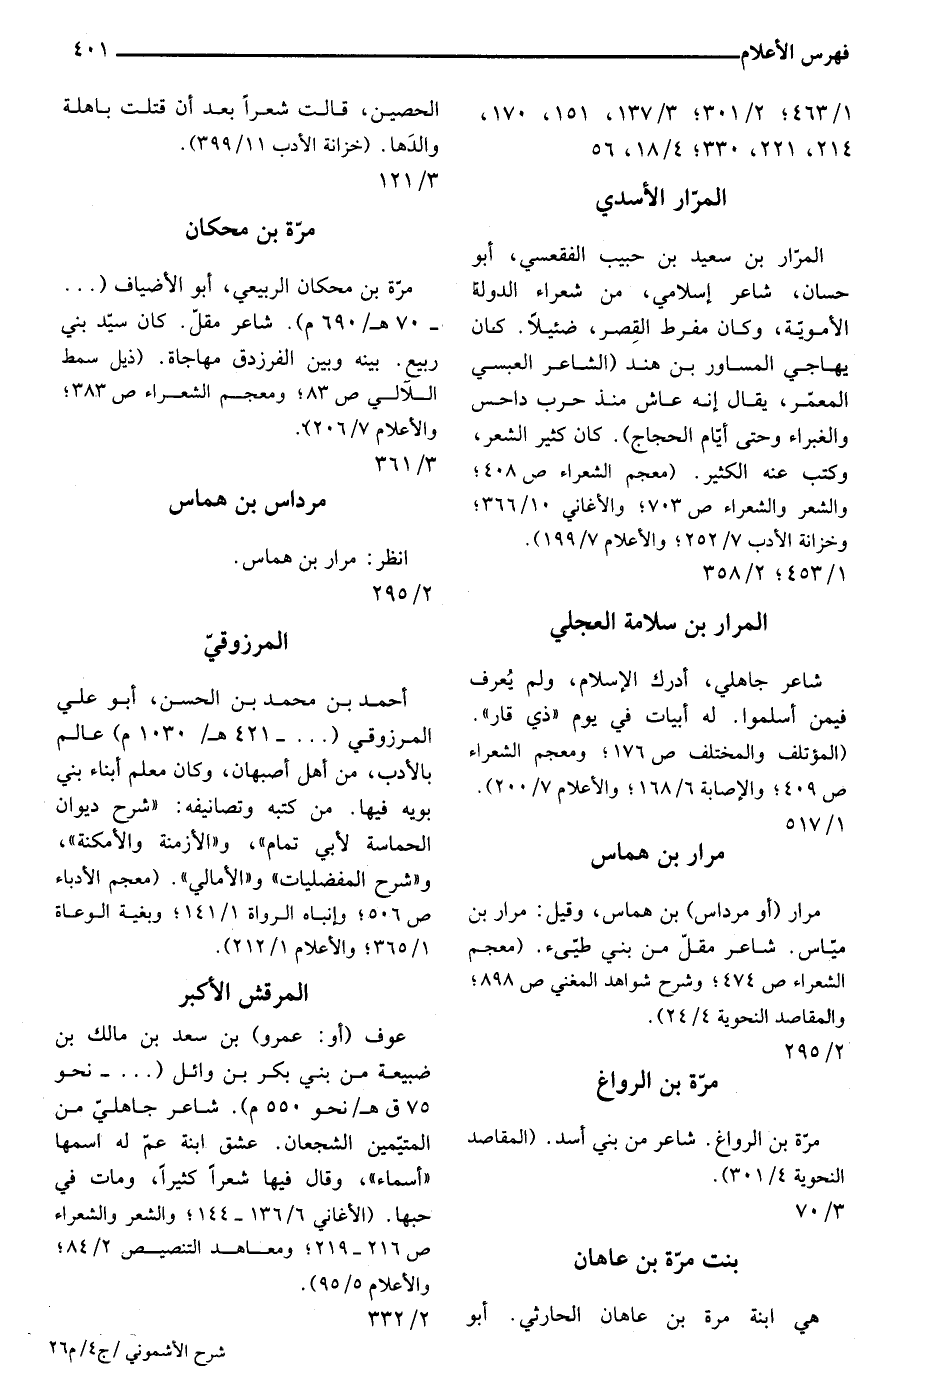 فهرس الأعلام ٤٠١
٤٦٣/١؛ ٣٠١/٢؛ ١٣٧/٣، ١٥١، ١٧٠،
٢١٤، ٢٢١، ٣٣٠؛ ١٨/٤، ٥٦
المرّار الأسدي
المرّار بن سعيد بن حبيب الفقعسي، أبو
حسان، شاعر إسلامي، من شعراء الدولة
الأمويّة، وكان مفرط القِصر، ضئيلاً. كان
يهاجي المساور بن هند (الشاعر العبسي
المعمّر، يقال إنه عاش منذ حرب داحس
والغبراء وحتى أيّام الحجاج). كان كثير الشعر،
وكتب عنه الكثير. (معجم الشعراء ص ٤٠٨؛
والشعر والشعراء ص ٧٠٣؛ والأغاني ٣٦٦/١٠؛
وخزانة الأدب ٢٥٢/٧؛ والأعلام ١٩٩/٧).
٤٥٣/١؛ ٣٥٨/٢
المرار بن سلامة العجلي
شاعر جاهلي، أدرك الإسلام، ولم يُعرف
فيمن أسلموا. له أبيات في يوم «ذي قار».
(المؤتلف والمختلف ص ١٧٦؛ ومعجم الشعراء
ص ٤٠٩؛ والإصابة ١٦٨/٦؛ والأعلام ٢٠٠/٧).
٥١٧/١
مرار بن هماس
مرار (أو مرداس) بن هماس، وقيل: مرار بن
ميّاس. شاعر مقلّ من بني طيّىء. (معجم
الشعراء ص ٤٧٤؛ وشرح شواهد المغني ص ٨٩٨؛
والمقاصد النحوية ٢٤/٤).
٢٩٥/٢
مرّة بن الرواغ
مرّة بن الرواغ. شاعر من بني أسد. (المقاصد
النحوية ٣٠١/٤).
٧٠/٣
بنت مرّة بن عاهان
هي ابنة مرة بن عاهان الحارثي. أبو
الحصين، قالت شعراً بعد أن قتلت باهلة
والدَها. (خزانة الأدب ٣٩٩/١١).
١٢١/٣
مرّة بن محكان
مرّة بن محكان الربيعي، أبو الأضياف (...
ـ ٧٠ هـ/ ٦٩٠ م). شاعر مقلّ. كان سيّد بني
ربيع. بينه وبين الفرزدق مهاجاة. (ذيل سمط
اللآلي ص ٨٣؛ ومعجم الشعراء ص ٣٨٣؛
والأعلام ٢٠٦/٧).
٣٦١/٣
مرداس بن هماس
انظر: مرار بن هماس.
٢٩٥/٢
المرزوقيّ
أحمد بن محمد بن الحسن، أبو علي
المرزوقي (... ـ ٤٢١ هـ/ ١٠٣٠ م) عالم
بالأدب، من أهل أصبهان، وكان معلم أبناء بني
بويه فيها. من كتبه وتصانيفه: «شرح ديوان
الحماسة لأبي تمام»، و«الأزمنة والأمكنة»،
و«شرح المفضليات» و«الأمالي». (معجم الأدباء
ص ٥٠٦؛ وإنباه الرواة ١٤١/١؛ وبغية الوعاة
٣٦٥/١؛ والأعلام ٢١٢/١).
المرقش الأكبر
عوف (أو: عمرو) بن سعد بن مالك بن
ضبيعة من بني بكر بن وائل (... ـ نحو
٧٥ ق هـ/ نحو ٥٥٠ م). شاعر جاهليّ من
المتيّمين الشجعان. عشق ابنة عمّ له اسمها
«أسماء»، وقال فيها شعراً كثيراً، ومات في
حبها. (الأغاني ١٣٦/٦ ـ ١٤٤؛ والشعر والشعراء
ص ٢١٦ ـ ٢١٩؛ ومعاهد التنصيص ٨٤/٢؛
والأعلام ٩٥/٥).
٣٣٢/٢
شرح الأشموني /ج٤/ م٢٦